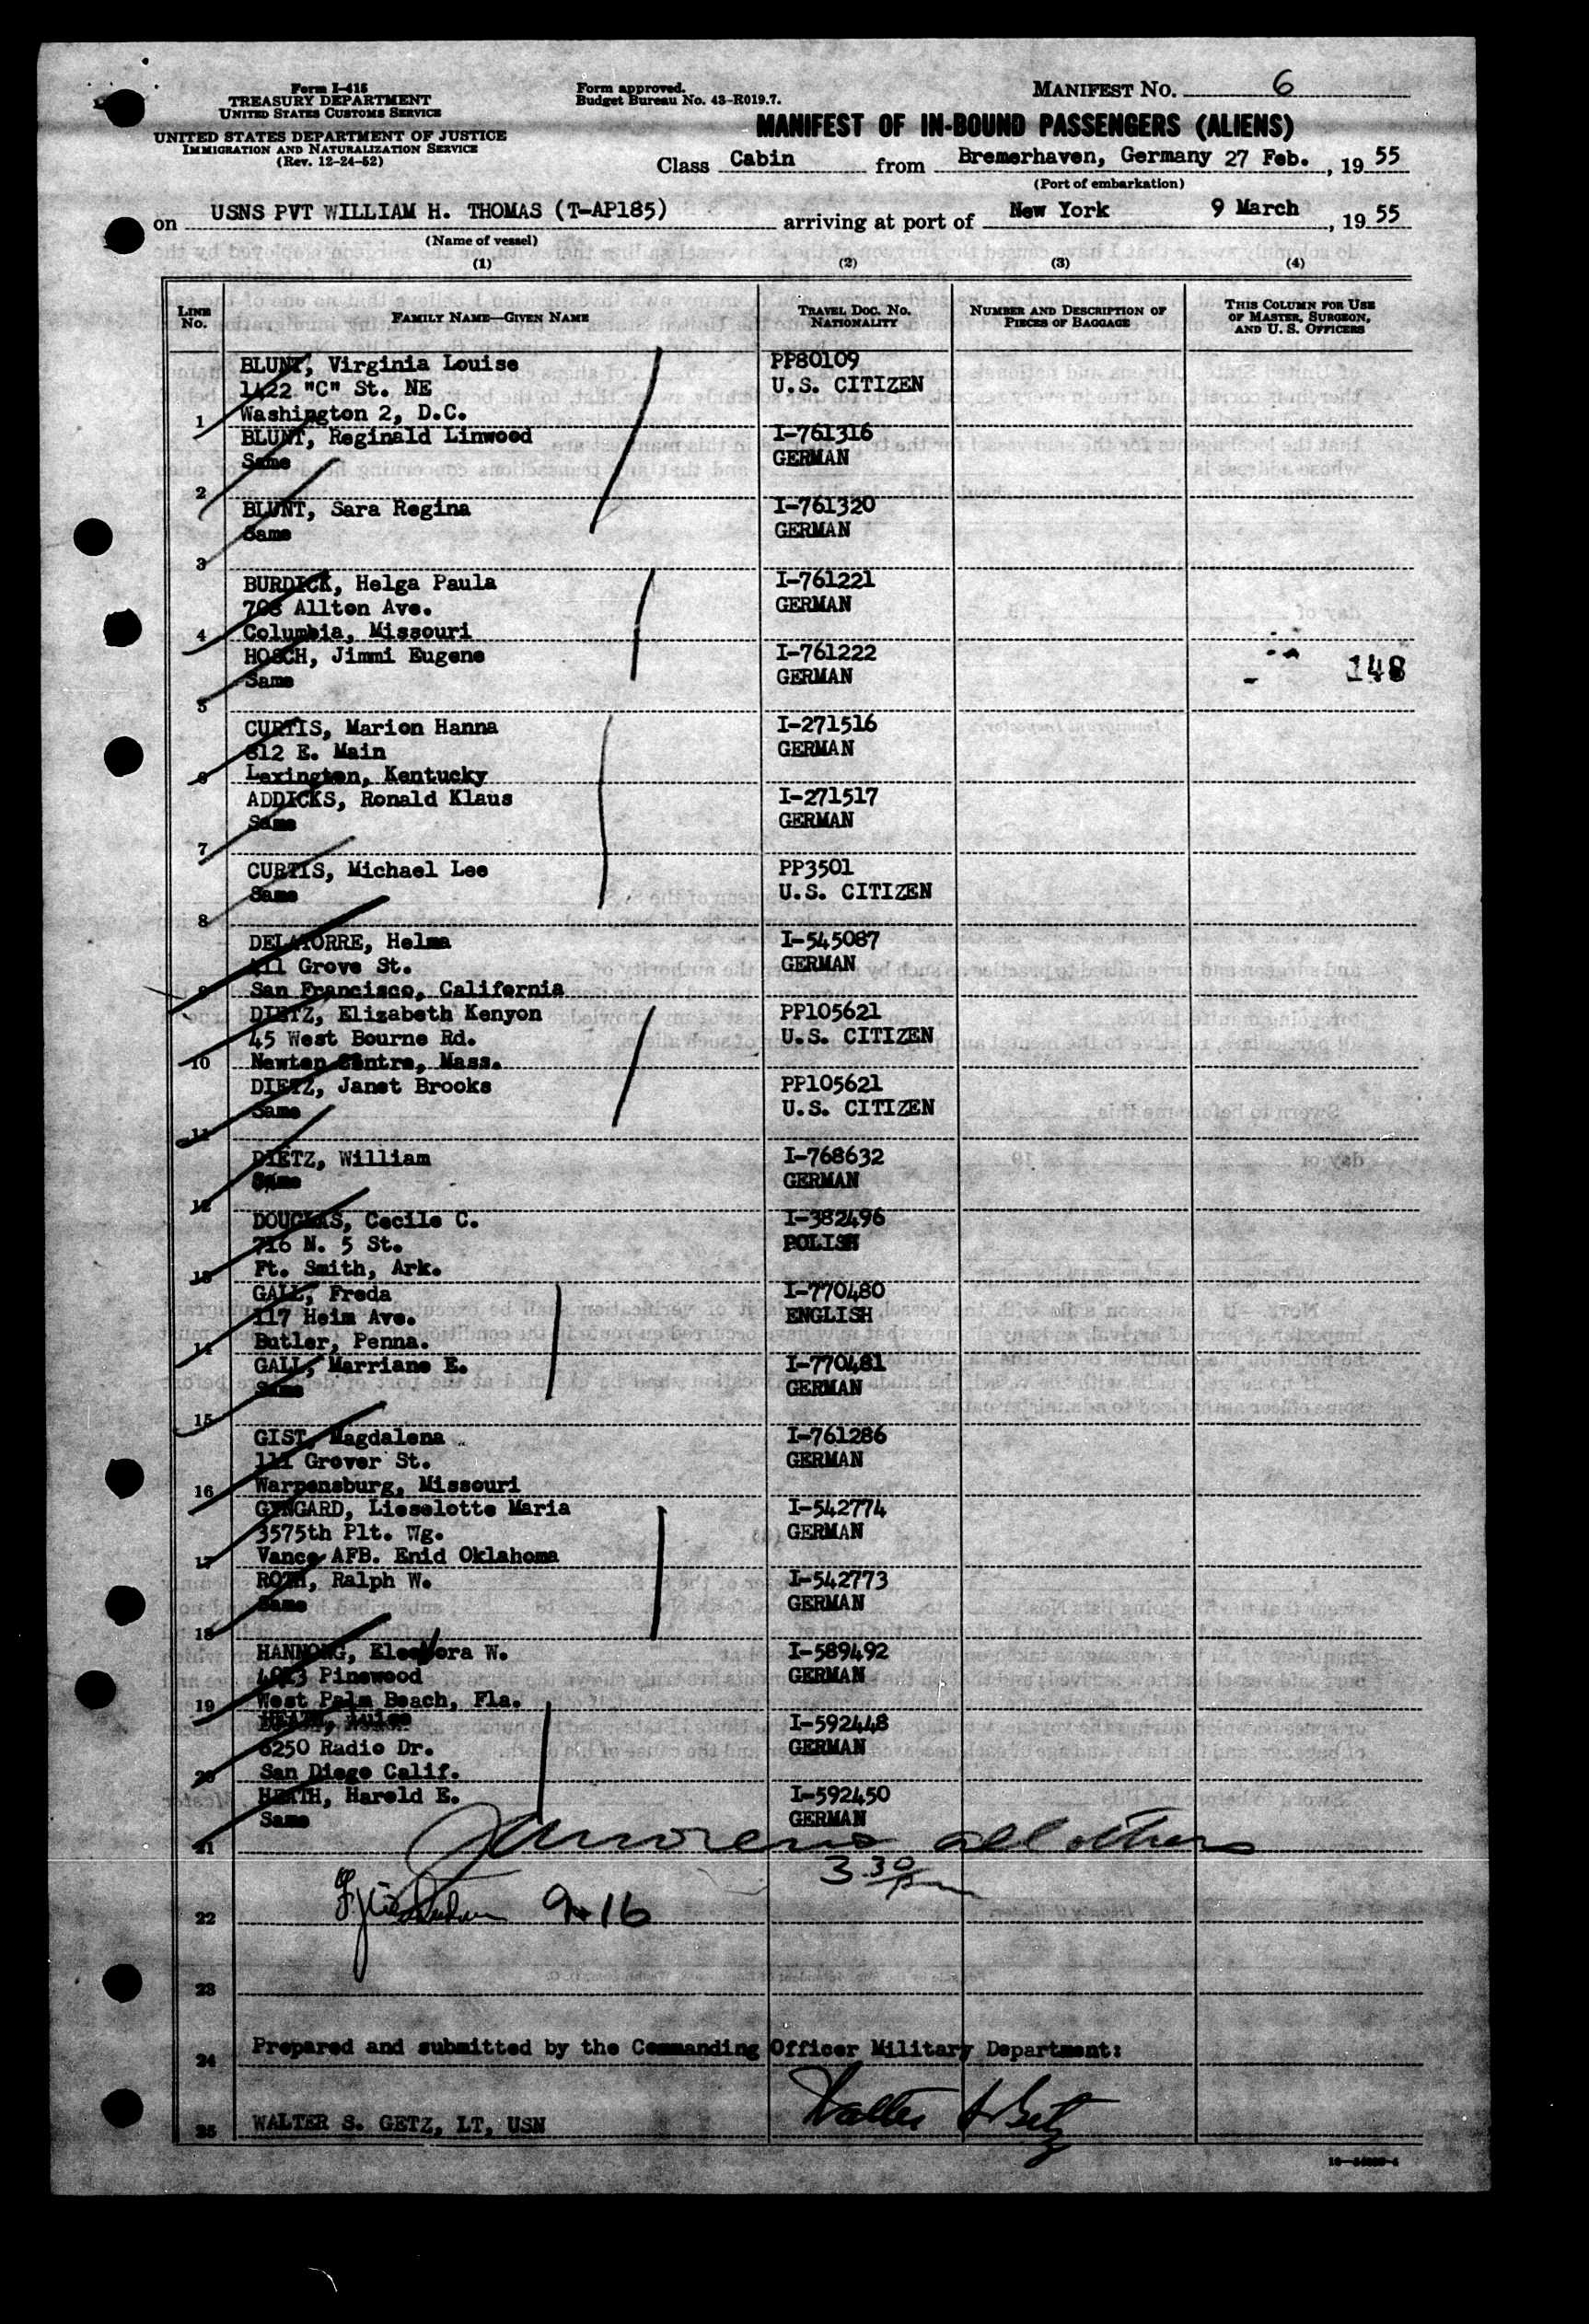 Form I-418
TREASURY DEPARTMENT
UNITED STATES CUSTOMS SERVICE
UNITED STATES DEPARTMENT OF JUSTICE
IMMIGRATION AND NATURALIZATION SERVICE
(Rev. 12-24-52)
Form approved.
Budget Bureau No. 43-R019.7.
MANIFEST NO. 6
MANIFEST OF IN-BOUND PASSENGERS (ALIENS)
Class Cabin from Bremerhaven, Germany 27 Feb., 1955
(Port of embarkation)
on USNS PVT WILLIAM H. THOMAS (T-AP185) arriving at port of New York 9 March, 1955
(Name of vessel)
(1) (2) (3) (4)
LINE No. FAMILY NAME—GIVEN NAME TRAVEL DOC. NO. NATIONALITY NUMBER AND DESCRIPTION OF PIECES OF BAGGAGE THIS COLUMN FOR USE OF MASTER, SURGEON, AND U. S. OFFICERS
BLUNT, Virginia Louise PP80109
1422 "C" St. NE U.S. CITIZEN
1 Washington 2, D.C.
BLUNT, Reginald Linwood I-761316
Same GERMAN
2
BLUNT, Sara Regina I-761320
Same GERMAN
3
BURDICK, Helga Paula I-761221
703 Allton Ave. GERMAN
4 Columbia, Missouri
HOSCH, Jimmi Eugene I-761222
Same GERMAN 148
5
CURTIS, Marion Hanna I-271516
812 E. Main GERMAN
6 Lexington, Kentucky
ADDICKS, Ronald Klaus I-271517
Same GERMAN
7
CURTIS, Michael Lee PP3501
Same U.S. CITIZEN
8
DELATORRE, Helma I-545087
411 Grove St. GERMAN
9 San Francisco, California
DIETZ, Elizabeth Kenyon PP105621
45 West Bourne Rd. U.S. CITIZEN
10 Newton Centre, Mass.
DIETZ, Janet Brooks PP105621
Same U.S. CITIZEN
11
DIETZ, William I-768632
Same GERMAN
12
DOUGLAS, Cecile C. I-382496
716 N. 5 St. POLISH
13 Ft. Smith, Ark.
GALL, Freda I-770480
117 Heim Ave. ENGLISH
14 Butler, Penna.
GALL, Marriane E. I-770481
Same GERMAN
15
GIST, Magdalena I-761286
111 Grover St. GERMAN
16 Warrensburg, Missouri
GINGARD, Lieselotte Maria I-542774
3575th Plt. Wg. GERMAN
17 Vance AFB. Enid Oklahoma
ROTH, Ralph W. I-542773
Same GERMAN
18
HANNONG, Eleonora W. I-589492
4913 Pinewood GERMAN
19 West Palm Beach, Fla.
HEATH, Luise I-592448
6250 Radio Dr. GERMAN
20 San Diego Calif.
HEATH, Harold E. I-592450
Same GERMAN
21 all others
3 30 pm
22 9-16
23
24 Prepared and submitted by the Commanding Officer Military Department:
25 WALTER S. GETZ, LT, USN Walter S Getz